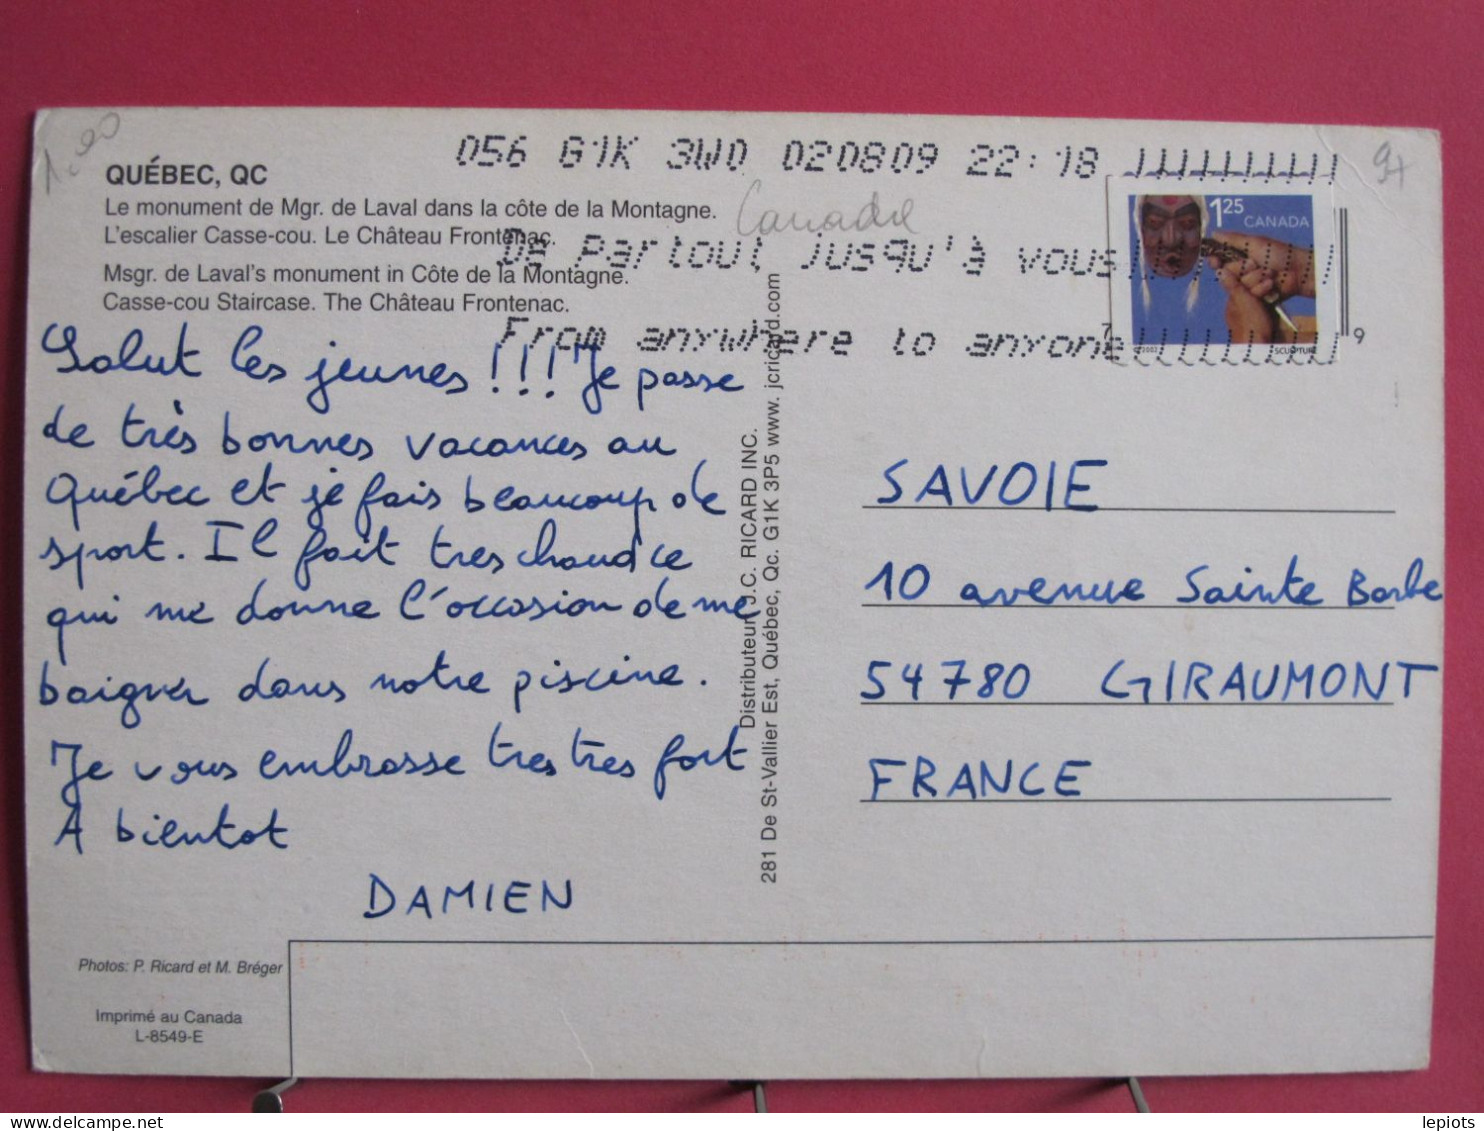 1.00
056 G1K 3W0 020809 22:18
94
QUÉBEC, QC
Le monument de Mgr. de Laval dans la côte de la Montagne.
L'escalier Casse-cou. Le Château Frontenac.
Canada
De partout jusqu'à vous
Msgr. de Laval's monument in Côte de la Montagne.
Casse-cou Staircase. The Château Frontenac.
From anywhere to anyone
125 CANADA
7 9
2002 SCULPTURE
Salut les jeunes !!! Je passe
de très bonnes vacances au
Québec et je fais beaucoup de
sport. Il fait tres chaud ce
qui me donne l'occasion de me
baigner dans notre piscine.
Je vous embrasse tres tres fort
A bientot
DAMIEN
Distributeur J.C. RICARD INC.
281 De St-Vallier Est, Québec, Qc. G1K 3P5 www. jcricard.com
SAVOIE
10 avenue Sainte Barbe
54780 GIRAUMONT
FRANCE
Photos: P. Ricard et M. Bréger
Imprimé au Canada
L-8549-E
delcampe.net
lepiots